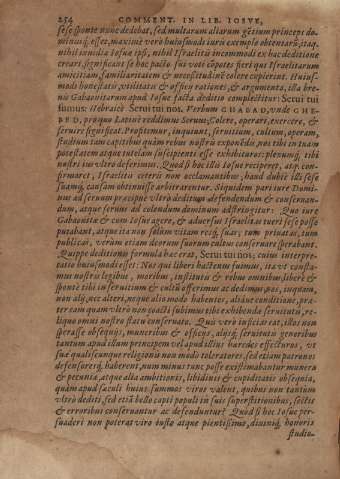 254 COMMENT. IN LIB. IOSVE,
sese sponte nunc dedebat, sed multarum aliarum gentium princeps do-
minusq́; esset, maximè verò huiusmodi iuris exemplo obtentaru̅, itaq.
nihil simulta Iosuæ ipsi, nihil Israelitis incommodi ex hac deditione
creari, significant se hoc pacto sui voti compotes fieri qui Israelitarum
amicitiam, familiaritatem & necessitudinē colere cupierint. Huius-
modi honestatis, vtilitatis & officij rationes, & argumenta, ista bre-
uis Gabaonitarum apud Iosue facta deditio complectitur: Serui tui
sumus: Hebraicè Serui tui nos, Verbum CHABAD, vnde CHE-
BED, proque Latinè reddimus Seruum; Colere, operari, exercere, &
seruire significat. Profitemur, inquiunt, seruitium, cultum, operam,
studium tam capitibus quàm rebus nostris exponēdis, nos tibi in tuam
potestatem atque tutelam suscipienti esse exhibituros: plenumq́; tibi
nostri ius vltrò deferimus. Quod si hoc illo Iosue reciperet, atq. con-
firmaret, Israelita ceteri non occlamantibus, haud dubiè illi sese
suamq́; causam obtinuisse arbitrarentur. Siquidem pari iure Domi-
nus ad seruum præcipuè vltrò deditum defendendum & conseruan-
dum, atque seruus ad colendum dominum adstringitur: Quo iure
Gabaonitæ & cum Iosue agere, & aduersus Israelitas tueri sese posse
putabant, atque ita non solùm vitam resq́; suas, tum priuatas, tum
publicas, verùm etiam deorum suorum cultus conseruare sperabant.
Quippe deditionis formula hæc erat, Serui tui nos; cuius interpre-
tatio huiusmodi esset: Nos qui liberi hactenus fuimus, ita vt consta-
mus nostris legibus, moribus, institutis & rebus omnibus, liberè &
spontè tibi in seruitium & cultū offerimus ac dedimus; nos, inquam,
non alij, nec alteri, neque alio modo habentes, aliáue conditione, præ-
ter eam quam vltrò non coacti subimus tibi exhibenda seruitutis, re-
liquo omni nostro statu conseruato. Quis verò inficias eat, illos non
sperasse obsequijs, muneribus & officijs, alijsq́; seruitutis generibus
tantum apud illum principem vel apud illius hæredes effecturos, vt
suæ qualiscunque religionis non modò toleratores, sed etiam patronos
defensoresq́; haberent, num minus tunc posse existimabantur munera
& pecuniæ, atque alta ambitionis, libidinis & cupiditatis obsequia,
quàm apud sæculi huius summos viros valent, quibus non tantum
vltrò dediti, sed etiā bello capti populi in suis superstitionibus, sectis
& erroribus conseruantur ac defenduntur? Quod si hoc Iosue per-
suaderi non poterat viro iusto atque pientissimo, diuiniq́; honoris
studio-